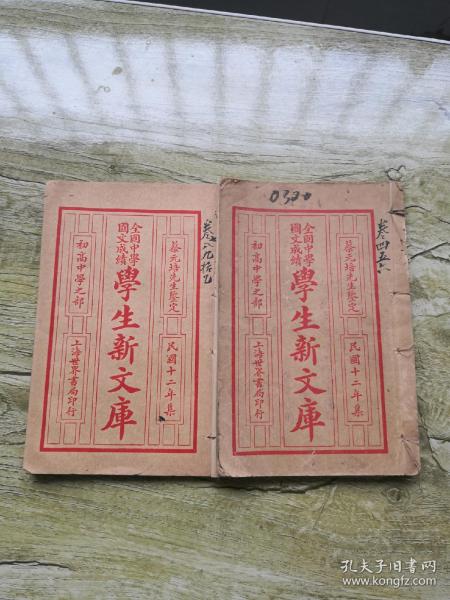 卷八九拾乙
蔡元培先生鑒定
民國十二年集
全國中學
國文成績
學生新文庫
初高中學之部
上海世界書局印行
0320
卷四五六
蔡元培先生鑒定
民國十二年集
全國中學
國文成績
學生新文庫
初高中學之部
上海世界書局印行
孔夫子旧书网
www.kongfz.com